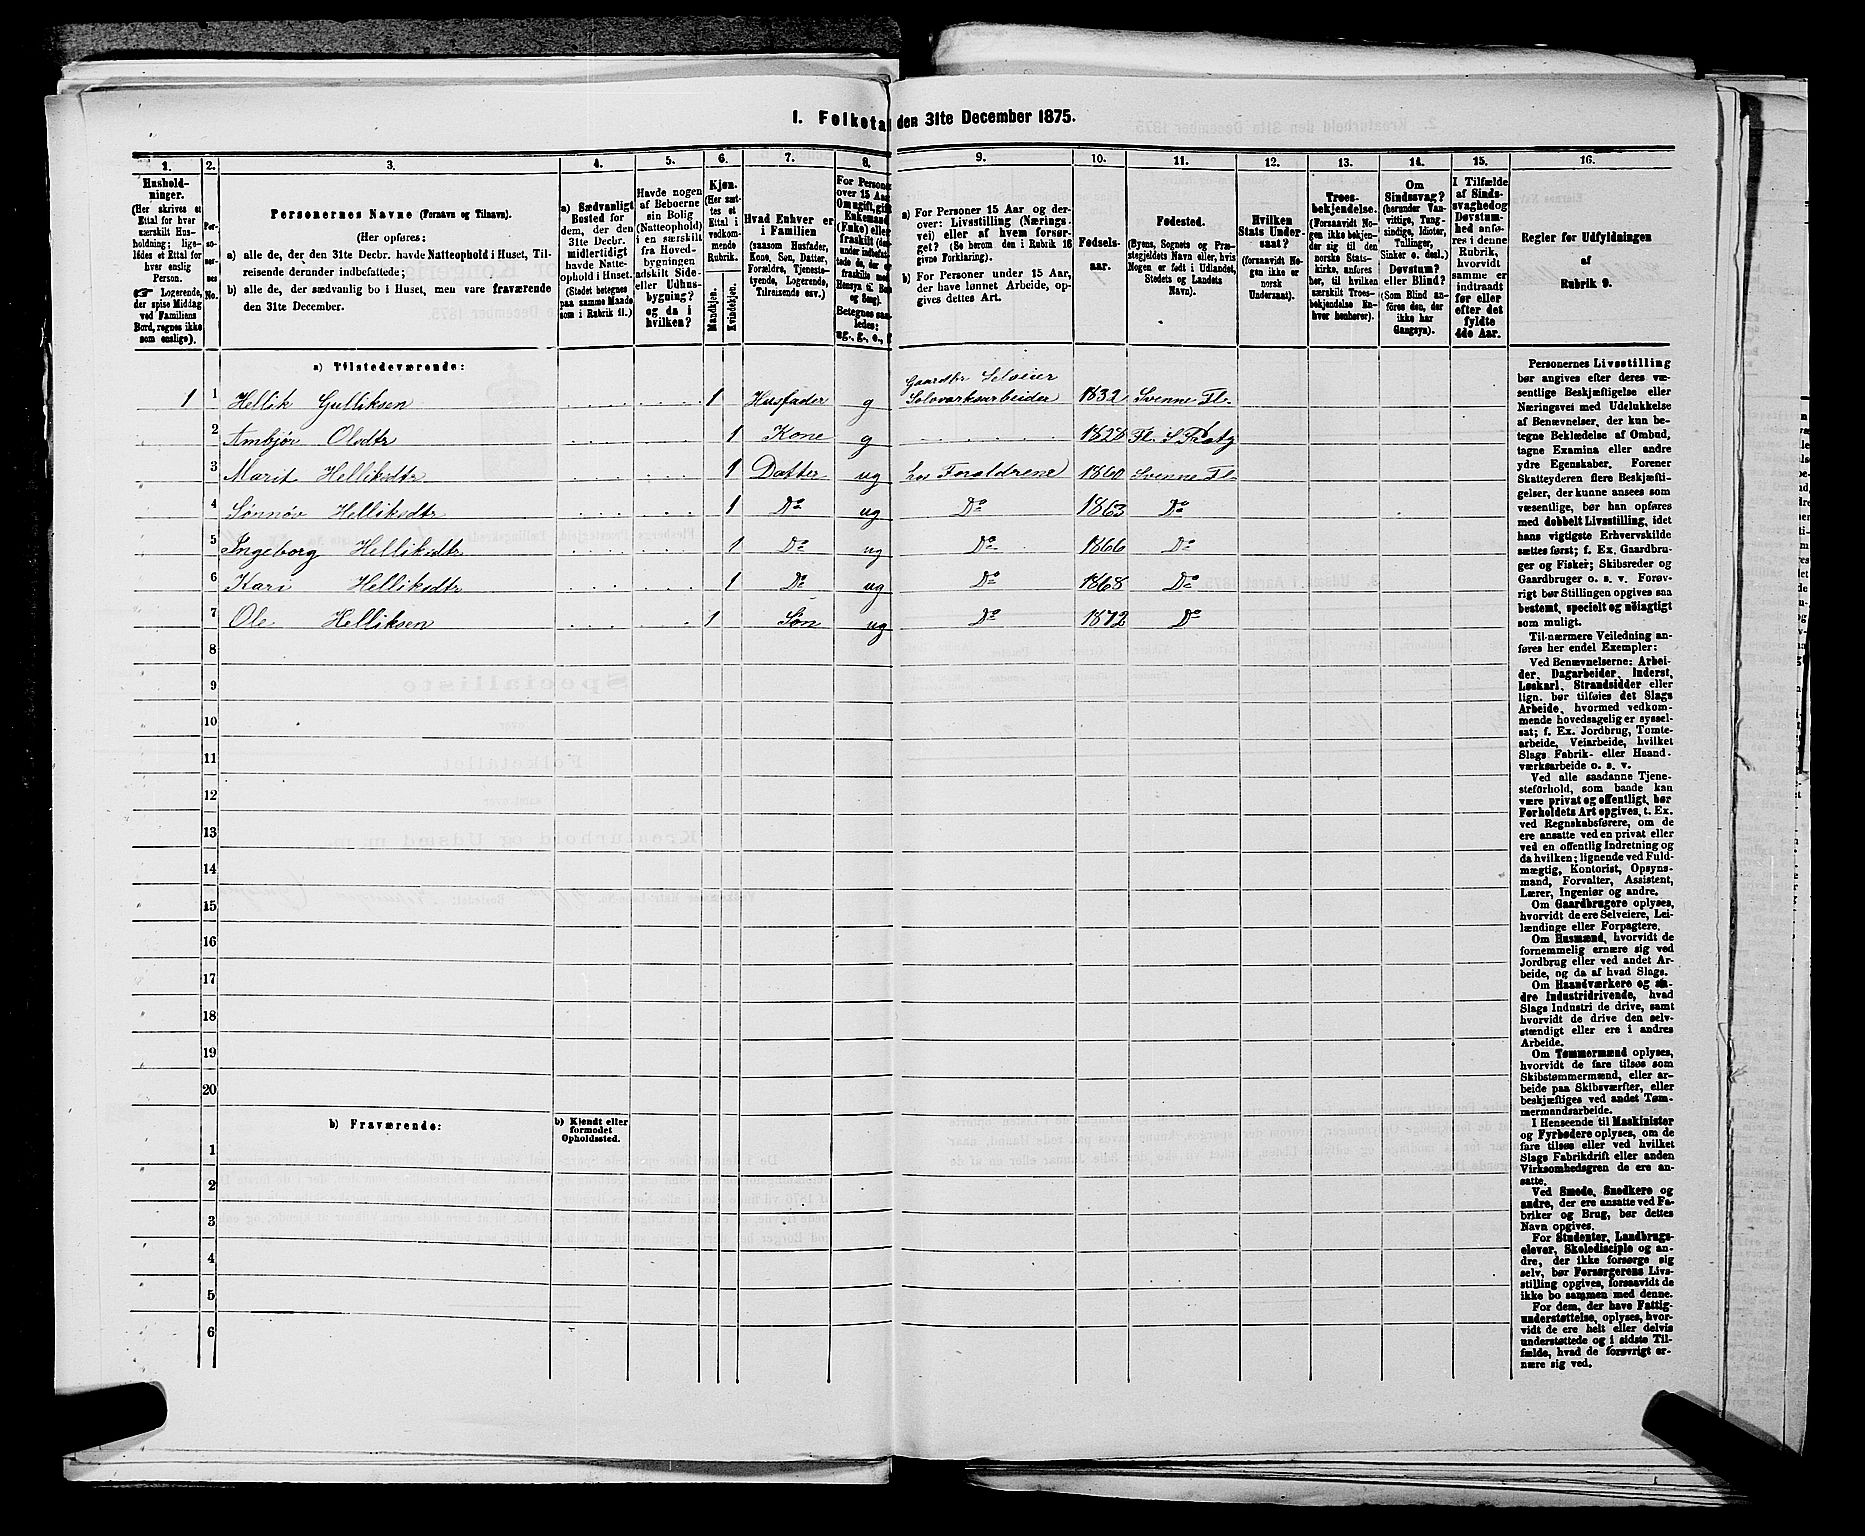 I. Folketal den 31te December 1875.
1. 2. 3. 4. 5. 6. 7. 8. 9. 10. 11. 12. 13. 14. 15. 16.
Hushold-
ninger.
(Her skrives et
Ettal for hver
særskilt Hus-
holdning; lige-
ledes et Ettal
for hver
enslig
Person.
☞ Logerende,
der spise Middag
ved Familiens
Bord, regnes ikke
som enslige).
Per-
so-
ner-
nes
No.
Personernes Navne (Fornavn og Tilnavn).
(Her opføres:
a) alle de, der den 31te Decbr. havde Natteophold i Huset, Til-
reisende derunder indbefattede;
b) alle de, der sædvanlig bo i Huset, men vare fraværende
den 31te December.
a) Sædvanligt
Bosted for
dem, der den
31te Decbr.
midlertidigt
havde Natte-
ophold i Huset.
(Stedet betegnes
paa samme Maade
som i Rubrik 11.)
Havde nogen
af Beboerne
sin Bolig
(Natteophold)
i en særskilt
fra Hoved-
bygningen
adskilt Side-
eller Udhus-
bygning?
og da i
hvilken?
Kjøn.
(Her sæt-
tes et
Ettal i
vedkom-
mende
Rubrik.
Mandkjøn.
Kvindekjøn.
Hvad Enhver er
i Familien
(saasom Husfader,
Kone, Søn, Datter,
Forældre, Tjeneste-
tyende, Logerende,
Tilreisende osv.)
For Persone
over 15 Aar
Om ugift, gift
Enkemand
(Enke) eller
fraskilt
Betegnes saa-
ledes:
ug., g., e., f
a) For Personer 15 Aar og der-
over: Livsstilling (Nærings-
vei) eller af hvem forsør-
get? (Se herom den i Rubrik 16
givne Forklaring).
b) For Personer under 15 Aar,
der have lønnet Arbeide, op-
gives dettes Art.
Fødsels-
aar.
Fødested.
(Byens, Sognets og Præ-
stegjeldets Navn eller, hvis
Nogen er født i Udlandet,
Stedets og Landets
Navn).
Hvilken
Stats Under-
saat?
(forsaavidt No-
gen ikke er
norsk
Undersaat).
Troes-
bekjendelse.
(Forsaavidt No-
gen ikke bekjen-
der sig til den
norske Stats-
kirke, anføres
her, til hvilken
særskilt Troes-
bekjendelse En-
hver henhører).
Om
Sindssvag?
(herunder Van-
vittige, Tung-
sindige, Idioter,
Tullinger,
Sinker o. desl.)
Døvstum?
eller Blind?
(Som Blind an-
føres den, der
ikke har
Gangsyn).
I Tilfælde
af Sinds-
svaghed og
Døvstum-
hed anfø-
res i denne
Rubrik,
hvorvidt
samme er
indtraadt
før eller
efter det
fyldte
4de Aar.
Regler for Udfyldningen
af
Rubrik 9.
a) Tilstedeværende:
1 1 Hellik Gulliksen 1 Husfader g Gaardbr Selveier
Sølvværksarbeider 1832 Svenne Fl.
2 Ambjør Olsdtr 1 Kone g 1828 Fl.
3 Marit Helliksdtr 1 Datter ug hos Forældrene 1860 Svenne Fl.
4 Sønnøv Helliksdtr 1 Do ug Do 1863 Do
5 Ingeborg Helliksdtr 1 Do ug Do 1866 Do
6 Kari Helliksdtr 1 Do ug Do 1868 Do
7 Ole Helliksen 1 Søn ug Do 1872 Do
8
9
10
11
12
13
14
15
16
17
18
19
20
b) Fraværende:
b) Kjendt eller
formodet
Opholdssted.
1
2
3
4
5
6
Personernes Livsstilling
bør angives efter deres væ-
sentlige Beskjæftigelse eller
Næringsvei med Udelukkelse
af Benævnelser, der kun be-
tegne Beklædelse af Ombud,
tagne Examina eller andre
ydre Egenskaber. Forener
Skatteyderen flere Beskjæfti-
gelser, der kunne ansees som
væsentlige, bør han opføres
med dobbelt Livsstilling, idet
hans vigtigste Erhvervskilde
sættes først; f. Ex. Gaardbru-
ger og Fisker; Skibsreder og
Gaardbruger o. s. v. Forøv-
rigt bør Stillingen opgives saa
bestemt, specielt og nøiagtigt
som muligt.
Til nærmere Veiledning an-
føres her endel Exempler:
Ved Benævnelserne: Arbei-
der, Dagarbeider, Inderst,
Løskarl, Strandsidder eller
lign. bør tilføies det Slags
Arbeide, hvormed vedkom-
mende hovedsagelig er syssel-
sat; f. Ex. Jordbrug, Tomte-
arbeide, Veiarbeide, hvilket
Slags Fabrik- eller Haand-
værksarbeide o. s. v.
Ved alle saadanne Tjene-
steforhold, som baade kan
være privat og offentligt, bør
Forholdets Art opgives, t. Ex.
ved Regnskabsførere, om de
ere ansatte ved en privat eller
ved en offentlig Indretning og
da hvilken; lignende ved Fuld-
mægtig, Kontorist, Opsyns-
mand, Forvalter, Assistent,
Lærer, Ingeniør og andre.
Om Gaardbrugere oplyses,
hvorvidt de ere Selveiere, Lei-
lændinge eller Forpagtere.
Om Husmænd, hvorvidt de
fornemmelig ernære sig ved
Jordbrug eller ved andet Ar-
beide, og da af hvad Slags.
Om Haandværkere og an-
dre Industridrivende, hvad
Slags Industri de drive, samt
hvorvidt de drive den selv-
stændigt eller ere i andres
Arbeide.
Om Tømmermænd oplyses,
hvorvidt de fare tilsøs som
Skibstømmermænd, eller ar-
beide paa Skibsværfter, eller
beskjæftiges ved andet Tøm-
mermandsarbeide.
I Henseende til Maskinister
og Fyrbødere oplyses, om de
fare tilsøs eller ved hvilket
Slags Fabrikdrift eller anden
Virksomhedsgren de ere an-
satte.
Ved Smede, Snedkere og
andre, der ere ansatte ved Fa-
briker og Brug, bør dettes
Navn opgives.
For Studenter, Landbrugs-
elever, Skoledisciple og an-
dre, der ikke forsørge sig
selv, bør Forsørgerens Livs-
stilling opgives, forsaavidt de
ikke bo sammen med denne.
For dem, der have Fattig-
understøttelse, oplyses, hvor-
vidt de ere helt eller delvis
understøttede og i sidste Til-
fælde, hvad de forøvrigt er-
nære sig ved.